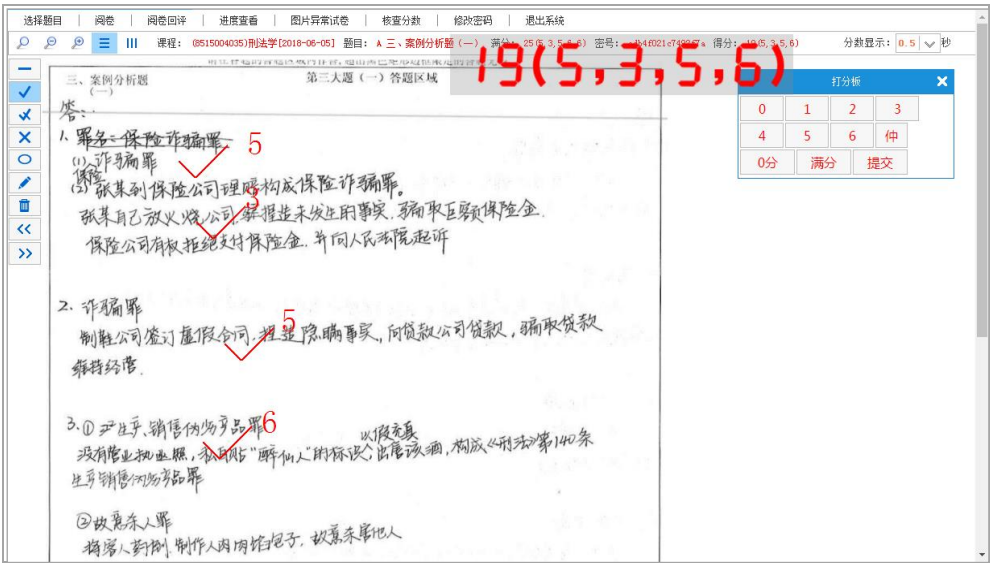 选择题目 | 阅卷 | 阅卷回评 | 进度查看 | 图片异常试卷 | 核查分数 | 修改密码 | 退出系统
课程: (8515004035)刑法学[2018-06-05] 题目: A 三、案例分析题(一) 满分: 25(5,3,5,6,6) 密号: 得分: 19(5,3,5,6) 分数显示: 0.5 秒
19(5,3,5,6)
打分板 ×
0 1 2 3
4 5 6 仲
0分 满分 提交
三、案例分析题 第三大题(一)答题区域
(一)
答:
1. 罪名:保险诈骗罪. 5
(1) 保险诈骗罪
(2) 张某到保险公司理赔构成保险诈骗罪。
3
张某自己放火烧公司,捏造未发生的事实,骗取巨额保险金.
保险公司有权拒绝支付保险金.并向人民法院起诉
2. 诈骗罪
5
制鞋公司签订虚假合同,捏造隐瞒事实,向贷款公司贷款,骗取贷款
维持经营.
3.① 生产、销售伪劣产品罪 6
以假充真
没有营业执照,私自贴"醉仙人"的标识,出售该酒,构成《刑法》第140条
生产销售伪劣产品罪
②故意杀人罪
将客人药倒,制作人肉肉馅包子,故意杀害他人